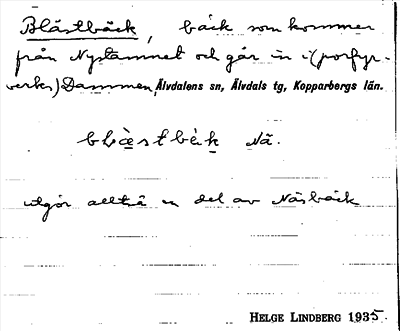 Blåstbäck, bäck som kommer
från Nystammet och går in i (porfyr-
verks) Dammen, Älvdalens sn, Älvdals tg, Kopparbergs län.
Nä.
utgör alltså en del av Näsbäck
HELGE LINDBERG 1935.